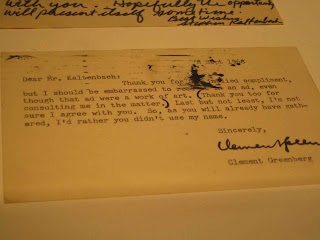 with you. Hopefully the opportunity
will present itself some time.
Best wishes,
Dear Mr. Kaltenbach:
Thank you for implied compliment,
but I should be embarrassed to an ad, even
though that ad were a work of art. Thank you too for
consulting me in the matter. Last but not least, I'm not
sure I agree with you. So, as you will already have gath-
ered, I'd rather you didn't use my name.
Sincerely,
Clement Greenberg